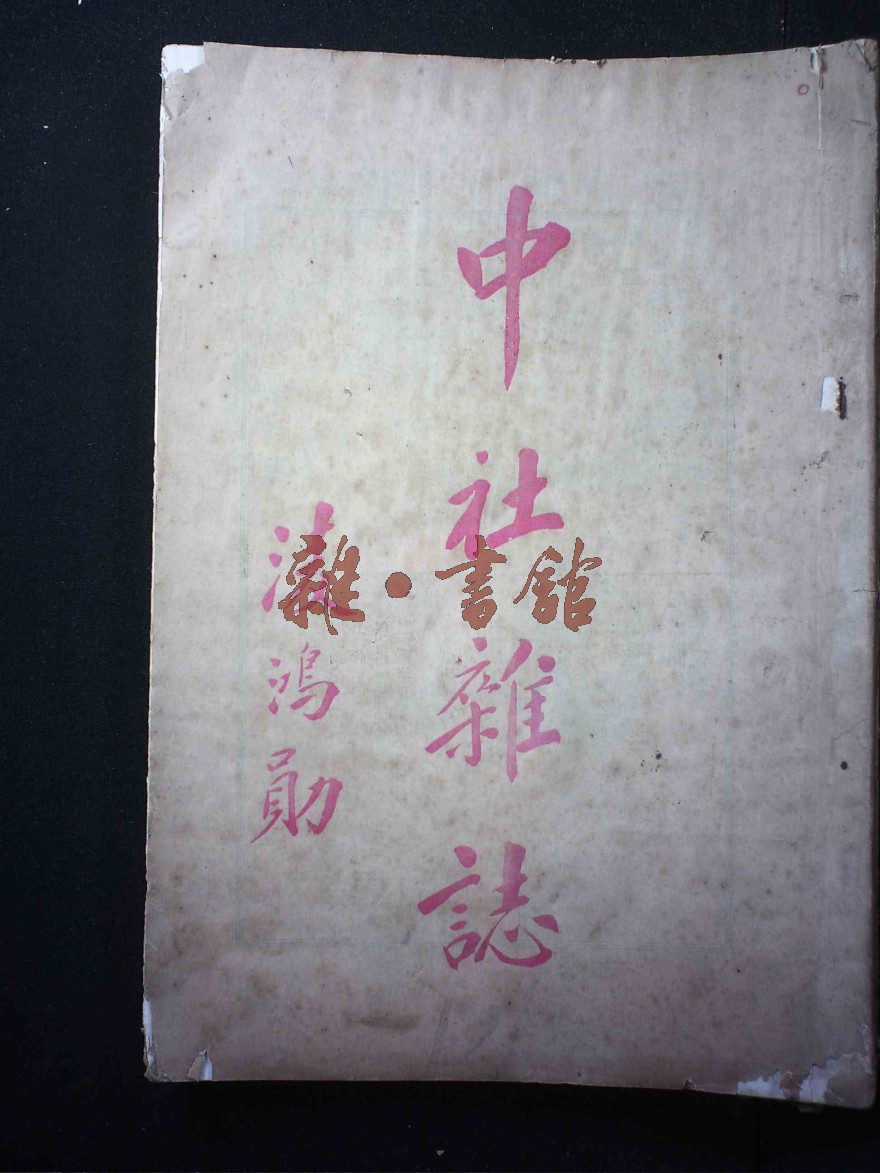 中社雜誌
淩鴻勛
雜·書館